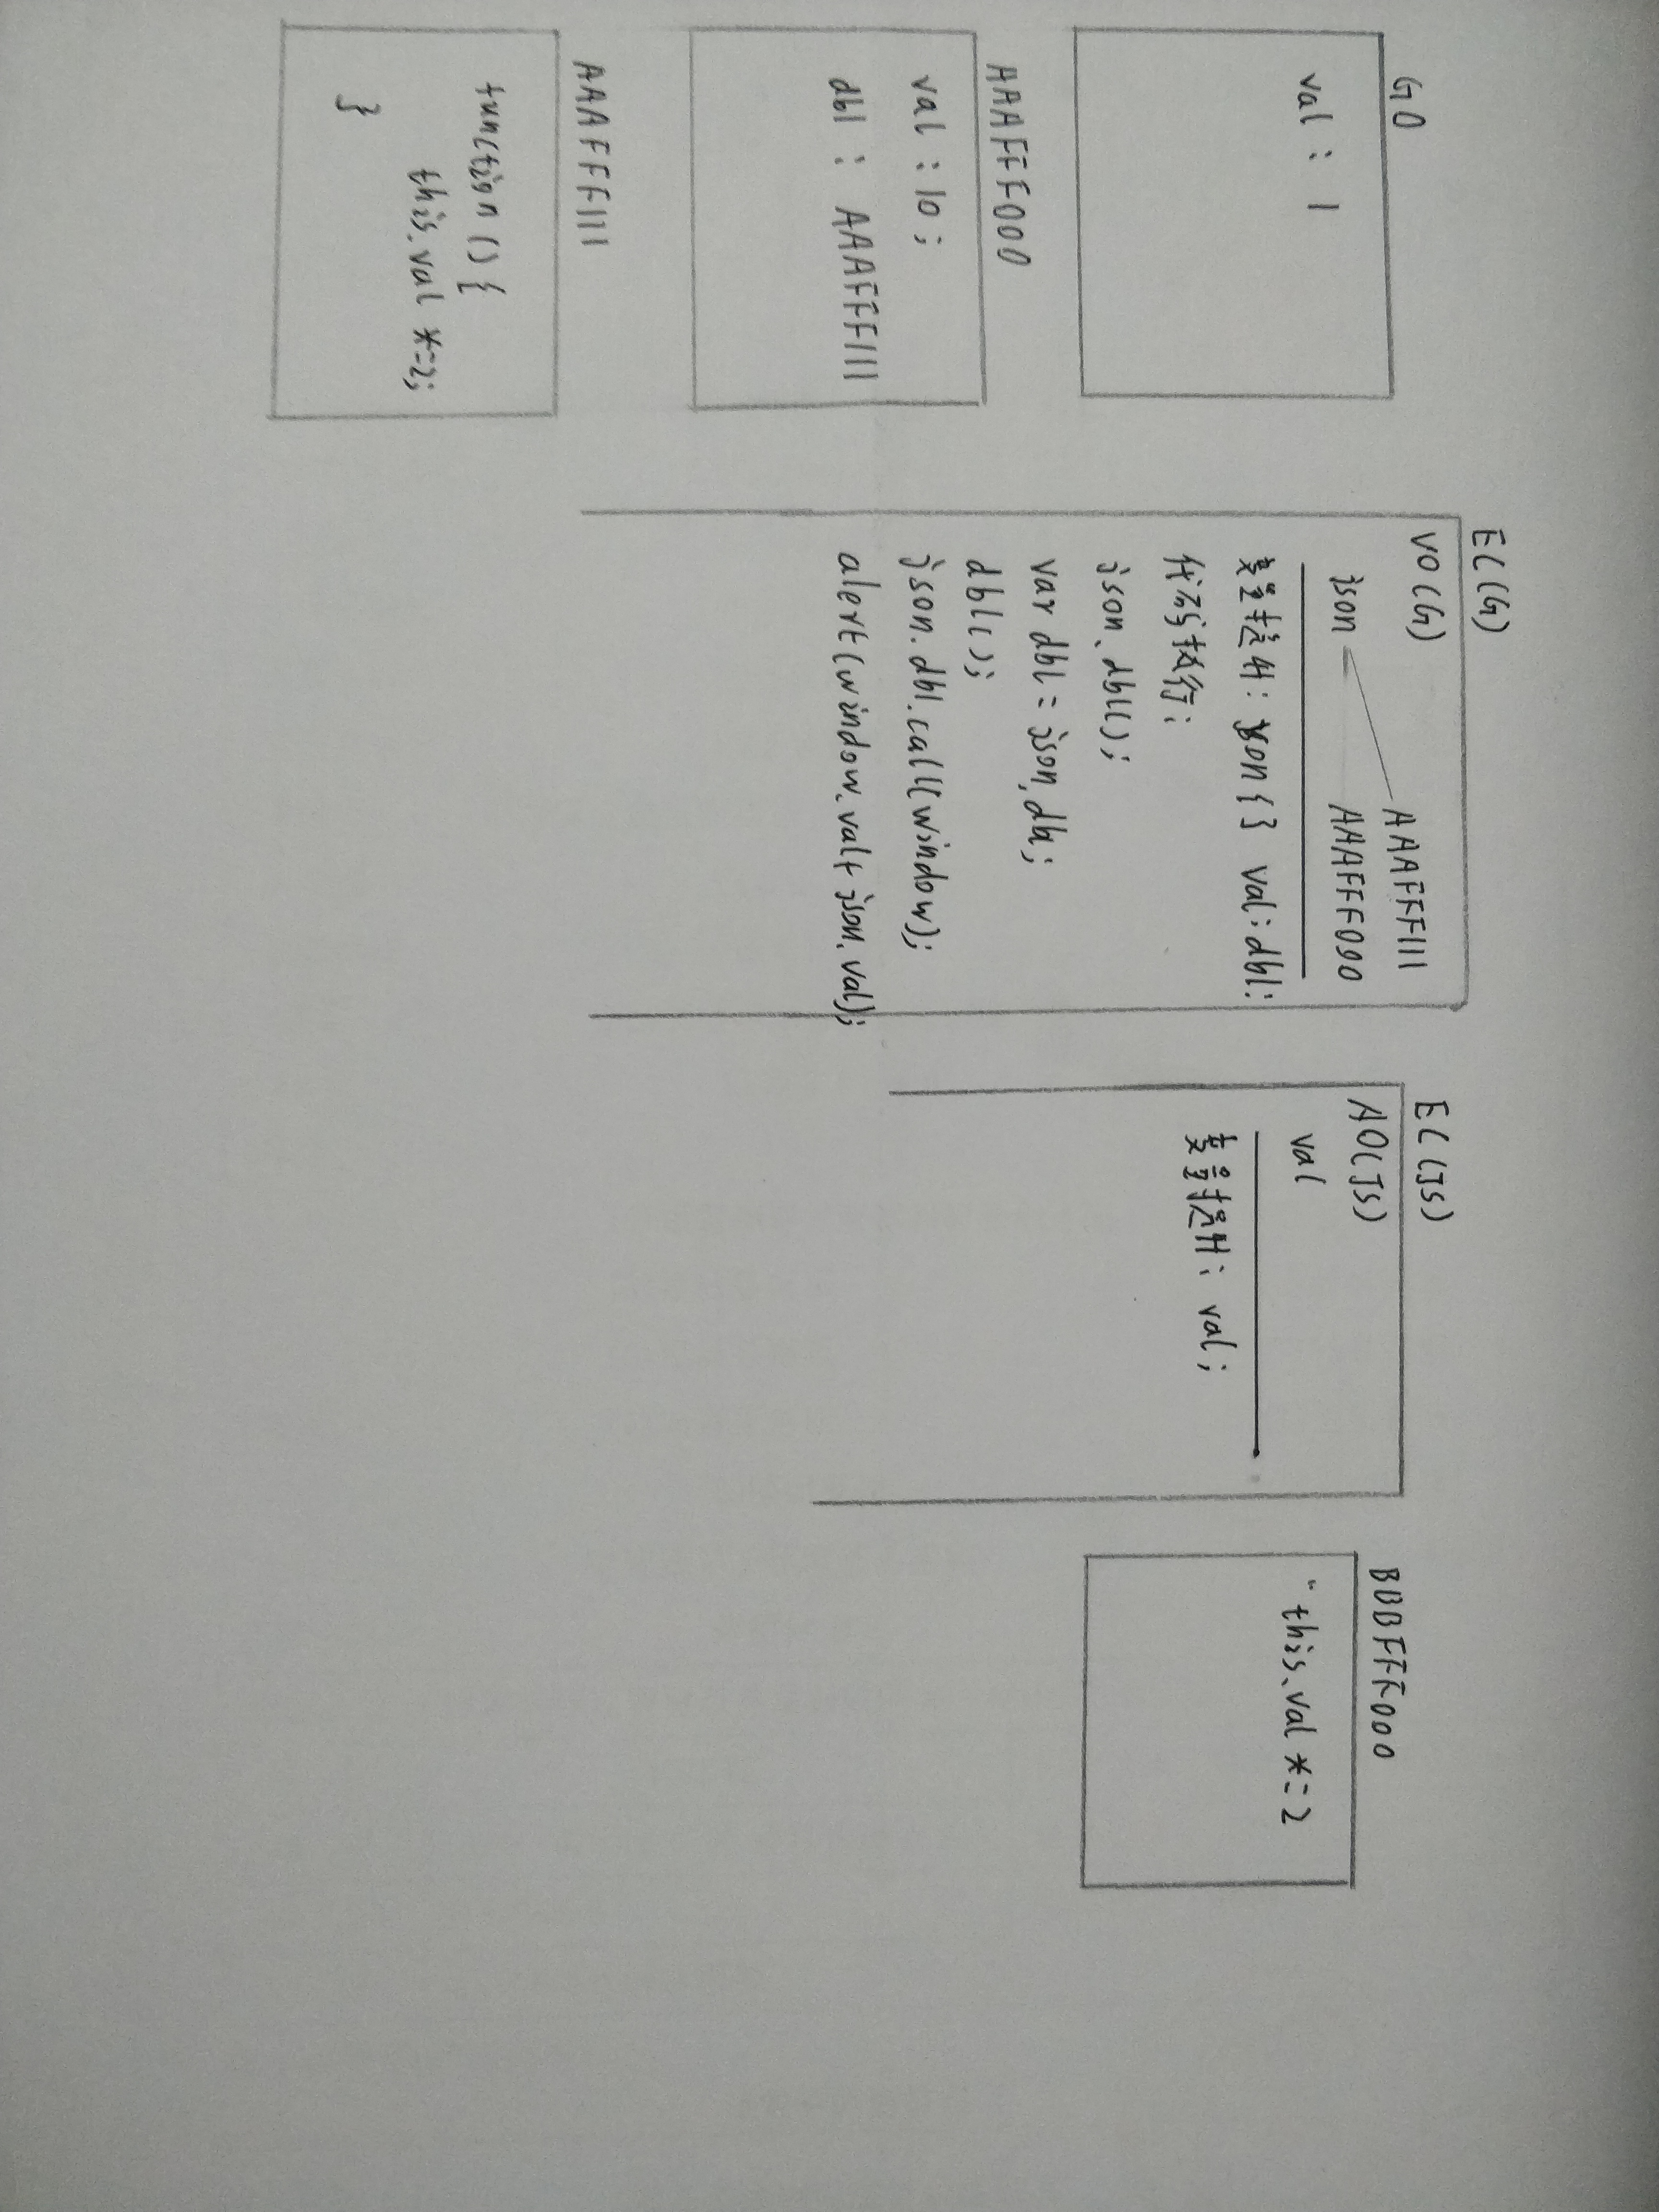 GO
val : 1
AAAFFF000
val : 10 ;
dbl : AAAFFF111
AAAFFF111
function () {
this.val *=2;
}
EC(G)
VO(G)
AAAFFF111
json AAAFFF000
变量提升: json{} val: dbl:
代码执行:
json.dbl();
var dbl = json.dbl;
dbl();
json.dbl.call(window);
alert(window.val+json.val);
EC(JS)
AO(JS)
val
变量提升: val;
BBBFFF000
"this.val *=2